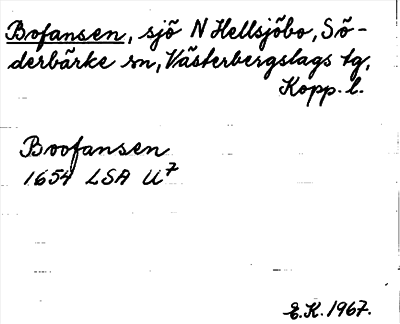 Bofansen, sjö N Hellsjöbo, Sö-
derbärke sn, Västerbergslags tg,
Kopp. l.
Boofansen
1654 LSA U7
E.K. 1967.